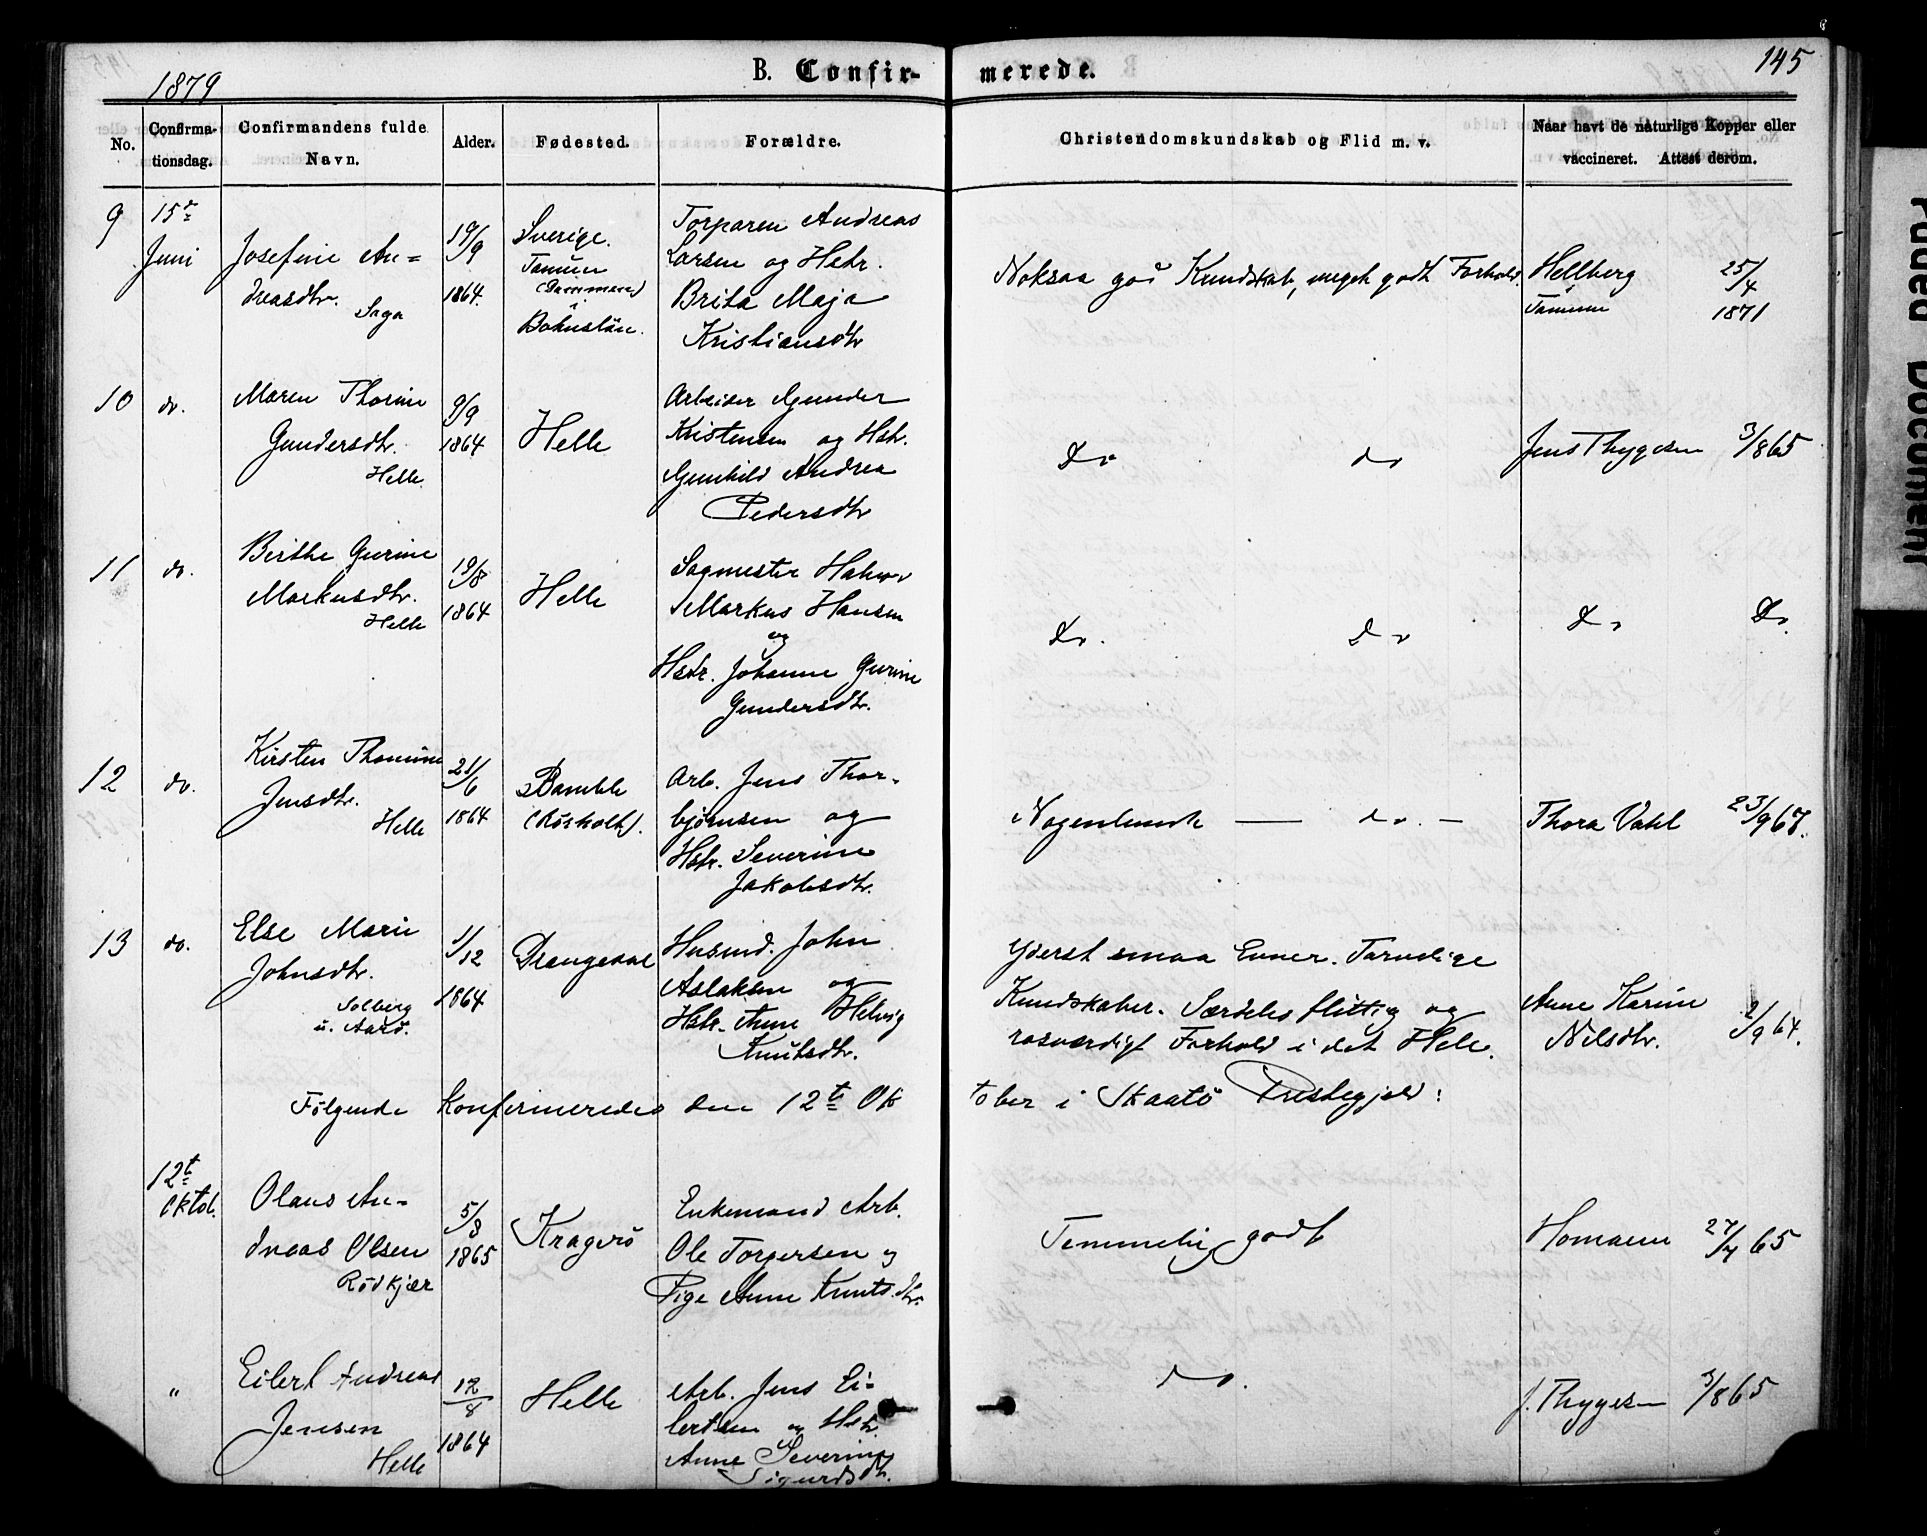 1879
B. Confir-
merede.
145
No.
Confirma-
tionsdag.
Confirmandens fulde
Navn.
Alder.
Fødested.
Forældre.
Christendomskundskab og Flid m. v.
Naar havt de naturlige Kopper eller
vaccineret. Attest derom.
9
15de
Juni
Josefine An=
dreasdtr.
Saga
19/9
1864.
Sverige.
Tanum
i
Bohuslän.
Torparen Andreas
Larsen og Hstr.
Brita Maja
Kristiansdtr
Noksaa god Kundskab, meget godt Forhold.
Hellberg
Tanum
25/4
1871
10
do.
Maren Thorine
Gundersdtr.
Helle.
9/9
1864
Helle
Arbeider Gunder
Kristensen og Hstr.
Gunhild Andrea
Pedersdtr
Do do
Jens Thygesen 3/865
11
do.
Berthe Gurine
Markusdtr.
Helle
19/8
1864
Helle
Sagmester
Markus Hansen
og
Hstr. Johanne Gurine
Gundersdtr.
Do. Do
Do Do.
12
do.
Kirsten Thomine
Jensdtr.
Helle
21/6
1864
Bamble
(Rørholt).
Arb. Jens Thor-
bjørnsen og
Hstr. Severine
Jakobsdtr.
Nogenlunde — do. -
Thora Vahl 23/967.
13
do.
Else Marie
Johnsdtr.
Solberg
u. Aarö.
1/12
1864
Drangedal
Husmd. John
Aslaksen og
Hstr. Anne Helvig
Knutsdtr.
Yderst smaa Evner. Tarvelige
Kundskaber. Særdeles flittig og
rosværdigt Forhold i det Hele.
Anne Karine
Nilsdtr.
2/964.
Følgende Konfirmeredes den 12te Ok
tober i Skaatö Prestegjeld:
12te
Oktob.
Olaus An-
dreas Olsen
Rödkjær
5/8
1865
Kragerö
Enkemand Arb.
Ole Torgersen og
Pige Anne Knutsdtr.
Temmelig godt
Homann 27/7 65
"
Eilert Andreas
Jensen
Helle
12/8
1864
Helle
Arb. Jens Ei-
lertsen og Hstr.
Anne Severine
Sigurdsdtr.
do.
J. Thygesen 3/865